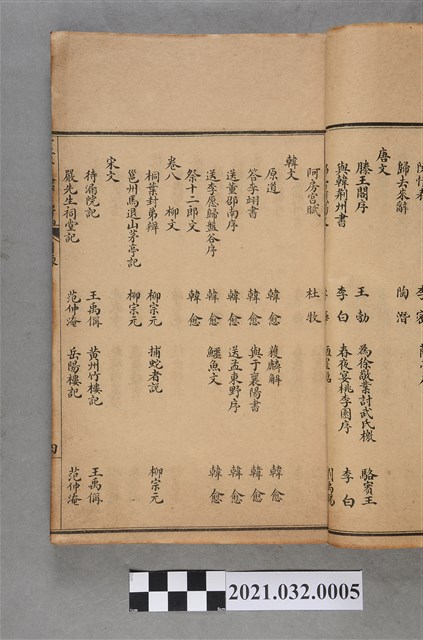 歸去來辭 陶潛
唐文
滕王閣序 王勃 為徐敬業討武氏檄 駱賓王
與韓荆州書 李白 春夜宴桃李園序 李白
阿房宮賦 杜牧
韓文
原道 韓愈 獲麟解 韓愈
答李翊書 韓愈 與于襄陽書 韓愈
送董邵南序 韓愈 送孟東野序 韓愈
送李愿歸盤谷序 韓愈 鱷魚文 韓愈
祭十二郎文 韓愈
卷八 柳文
桐葉封弟辯 柳宗元 捕蛇者説 柳宗元
邕州馬退山茅亭記 柳宗元
宋文
待漏院記 王禹偁 黄州竹樓記 王禹偁
嚴先生祠堂記 范仲淹 岳陽樓記 范仲淹
2021.032.0005